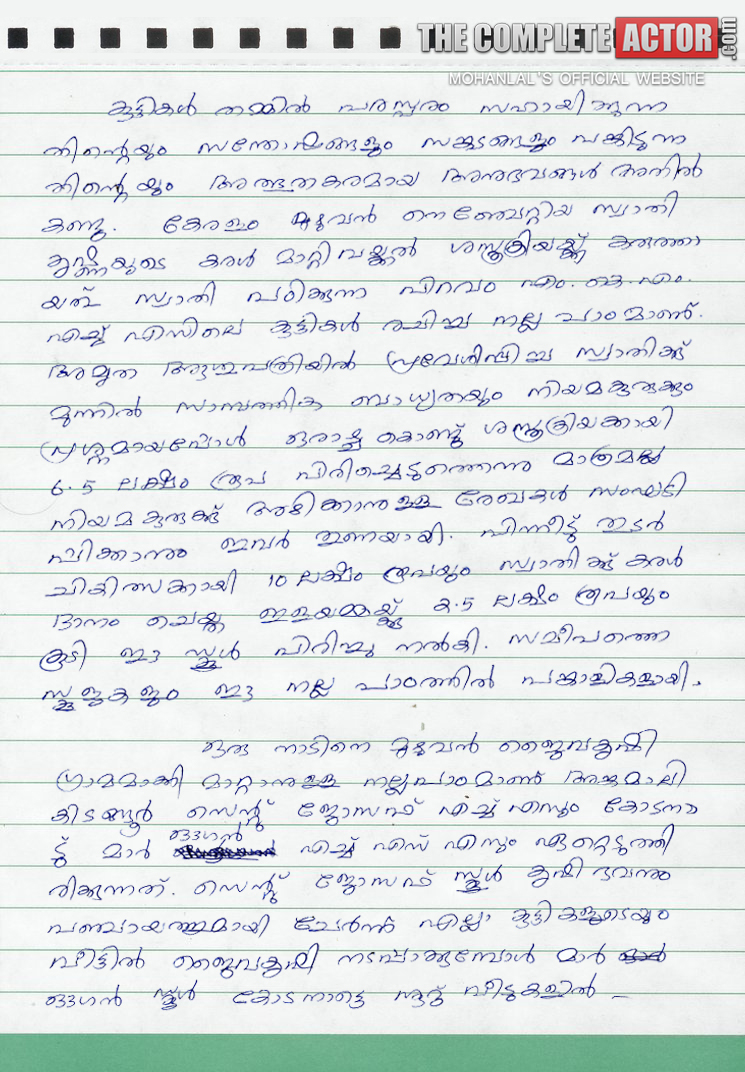 THE COMPLETE ACTOR.com
MOHANLAL'S OFFICIAL WEBSITE
കുട്ടികൾ തമ്മിൽ പരസ്പരം സഹായിക്കുന്ന
തിന്റെയും സന്തോഷങ്ങളും സങ്കടങ്ങളും പങ്കിടുന്ന
തിന്റെയും അത്ഭുതകരമായ അനുഭവങ്ങൾ അതിൽ
കണ്ടു. കേരളം മുഴുവൻ നെഞ്ചേറ്റിയ സ്വാതി
കൃഷ്ണയുടെ കരൾ മാറ്റിവയ്ക്കൽ ശസ്ത്രക്രിയക്ക് കരുത്താ
യത് സ്വാതി പഠിക്കുന്ന പിറവം എം.കെ.എം.
എച്ച് എസിലെ കുട്ടികൾ രചിച്ച നല്ല പാഠമാണ്.
അമൃത ആശുപത്രിയിൽ പ്രവേശിപ്പിച്ച സ്വാതിക്ക്
മുന്നിൽ സാമ്പത്തിക ബാധ്യതയും നിയമകുരുക്കും
പ്രശ്നമായപ്പോൾ ഒരാഴ്ച കൊണ്ട് ശസ്ത്രക്രിയക്കായി
6.5 ലക്ഷം രൂപ പിരിച്ചെടുത്തെന്നു മാത്രമല്ല
നിയമകുരുക്ക് അഴിക്കാനുള്ള രേഖകൾ സംഘടി
പ്പിക്കാനും ഇവർ തുണയായി. പിന്നീട് തുടർ
ചികിത്സക്കായി 10 ലക്ഷം രൂപയും സ്വാതിക്ക് കരൾ
ദാനം ചെയ്ത ഇളയമ്മയ്ക്ക് 2.5 ലക്ഷം രൂപയും
കൂടി ഈ സ്കൂൾ പിരിച്ചു നൽകി. സമീപത്തെ
സ്കൂളുകളും ഈ നല്ല പാഠത്തിൽ പങ്കാളികളായി.
ഒരു നാടിനെ മുഴുവൻ ജൈവകൃഷി
ഗ്രാമമാക്കി മാറ്റാനുള്ള നല്ലപാഠമാണ് അങ്കമാലി
കിടങ്ങൂർ സെന്റ് ജോസഫ് എച്ച് എസും കോടനാ
ട് മാർ ഔഗൻ എച്ച് എസ് എസും ഏറ്റെടുത്തി
രിക്കുന്നത്. സെന്റ് ജോസഫ് സ്കൂൾ കൃഷി ഭവനും
പഞ്ചായത്തുമായി ചേർന്ന് എല്ലാ കുട്ടികളുടെയും
വീട്ടിൽ ജൈവകൃഷി നടപ്പാക്കുമ്പോൾ മാർ
ഔഗൻ സ്കൂൾ കോടനാട്ടെ നൂറ് വീടുകളിൽ –